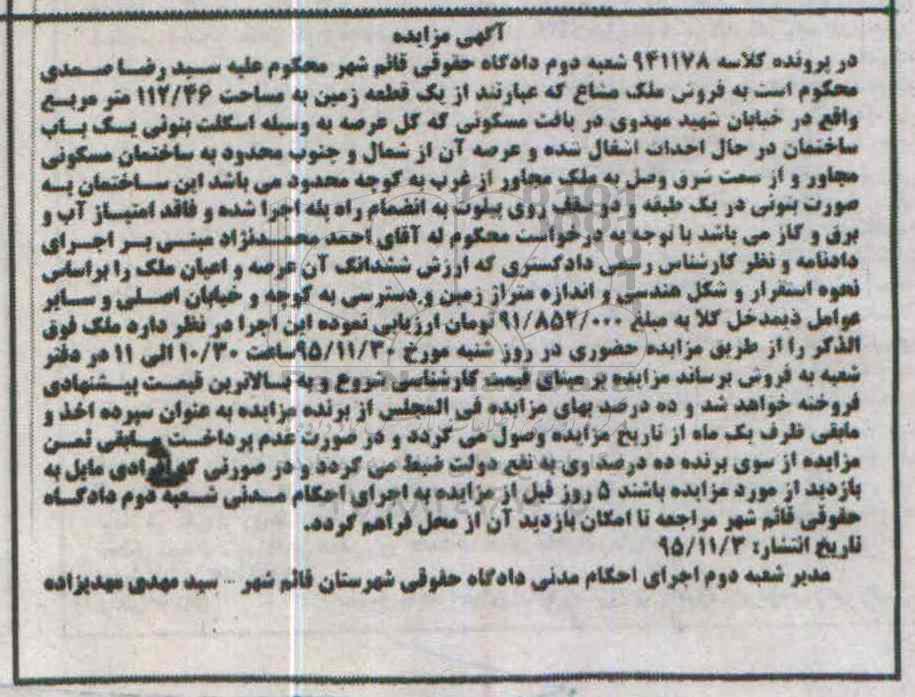 آگهی مزایده
در پرونده کلاسه ۹۴۱۱۷۸ شعبه دوم دادگاه حقوقی قائم شهر محکوم علیه سید رضا صمدی
محکوم است به فروش ملک مشاع که عبارتند از یک قطعه زمین به مساحت ۱۱۲/۴۶ متر مربع
واقع در خیابان شهید مهدوی در بافت مسکونی که کل عرصه به وسیله اسکلت بتونی یک باب
ساختمان در حال احداث اشغال شده و عرصه آن از شمال و جنوب محدود به ساختمان مسکونی
مجاور و از سمت شرق وصل به ملک مجاور از غرب به کوچه محدود می باشد این ساختمان به
صورت بتونی در یک طبقه و دو سقف روی پیلوت به انضمام راه پله اجرا شده و فاقد امتیاز آب و
برق و گاز می باشد با توجه به درخواست محکوم له آقای احمد محمدنژاد مبنی بر اجرای
دادنامه و نظر کارشناس رسمی دادگستری که ارزش ششدانگ آن عرصه و اعیان ملک را براساس
نحوه استقرار و شکل هندسی و اندازه متراژ زمین و دسترسی به کوچه و خیابان اصلی و سایر
عوامل ذیمدخل کلا به مبلغ ۹۱/۸۵۲/۰۰۰ تومان ارزیابی نموده این اجرا در نظر دارد ملک فوق
الذکر را از طریق مزایده حضوری در روز شنبه مورخ ۹۵/۱۱/۳۰ ساعت ۱۰/۳۰ الی ۱۱ در دفتر
شعبه به فروش برساند مزایده بر مبنای قیمت کارشناسی شروع و به بالاترین قیمت پیشنهادی
فروخته خواهد شد و ده درصد بهای مزایده فی المجلس از برنده مزایده به عنوان سپرده اخذ و
مابقی ظرف یک ماه از تاریخ مزایده وصول می گردد و در صورت عدم پرداخت مابقی ثمن
مزایده از سوی برنده ده درصد وی به نفع دولت ضبط می گردد و در صورتی که افرادی مایل به
بازدید از مورد مزایده باشند ۵ روز قبل از مزایده به اجرای احکام مدنی شعبه دوم دادگاه
حقوقی قائم شهر مراجعه تا امکان بازدید آن از محل فراهم گردد.
تاریخ انتشار: ۹۵/۱۱/۳
مدیر شعبه دوم اجرای احکام مدنی دادگاه حقوقی شهرستان قائم شهر - سید مهدی مهدیزاده